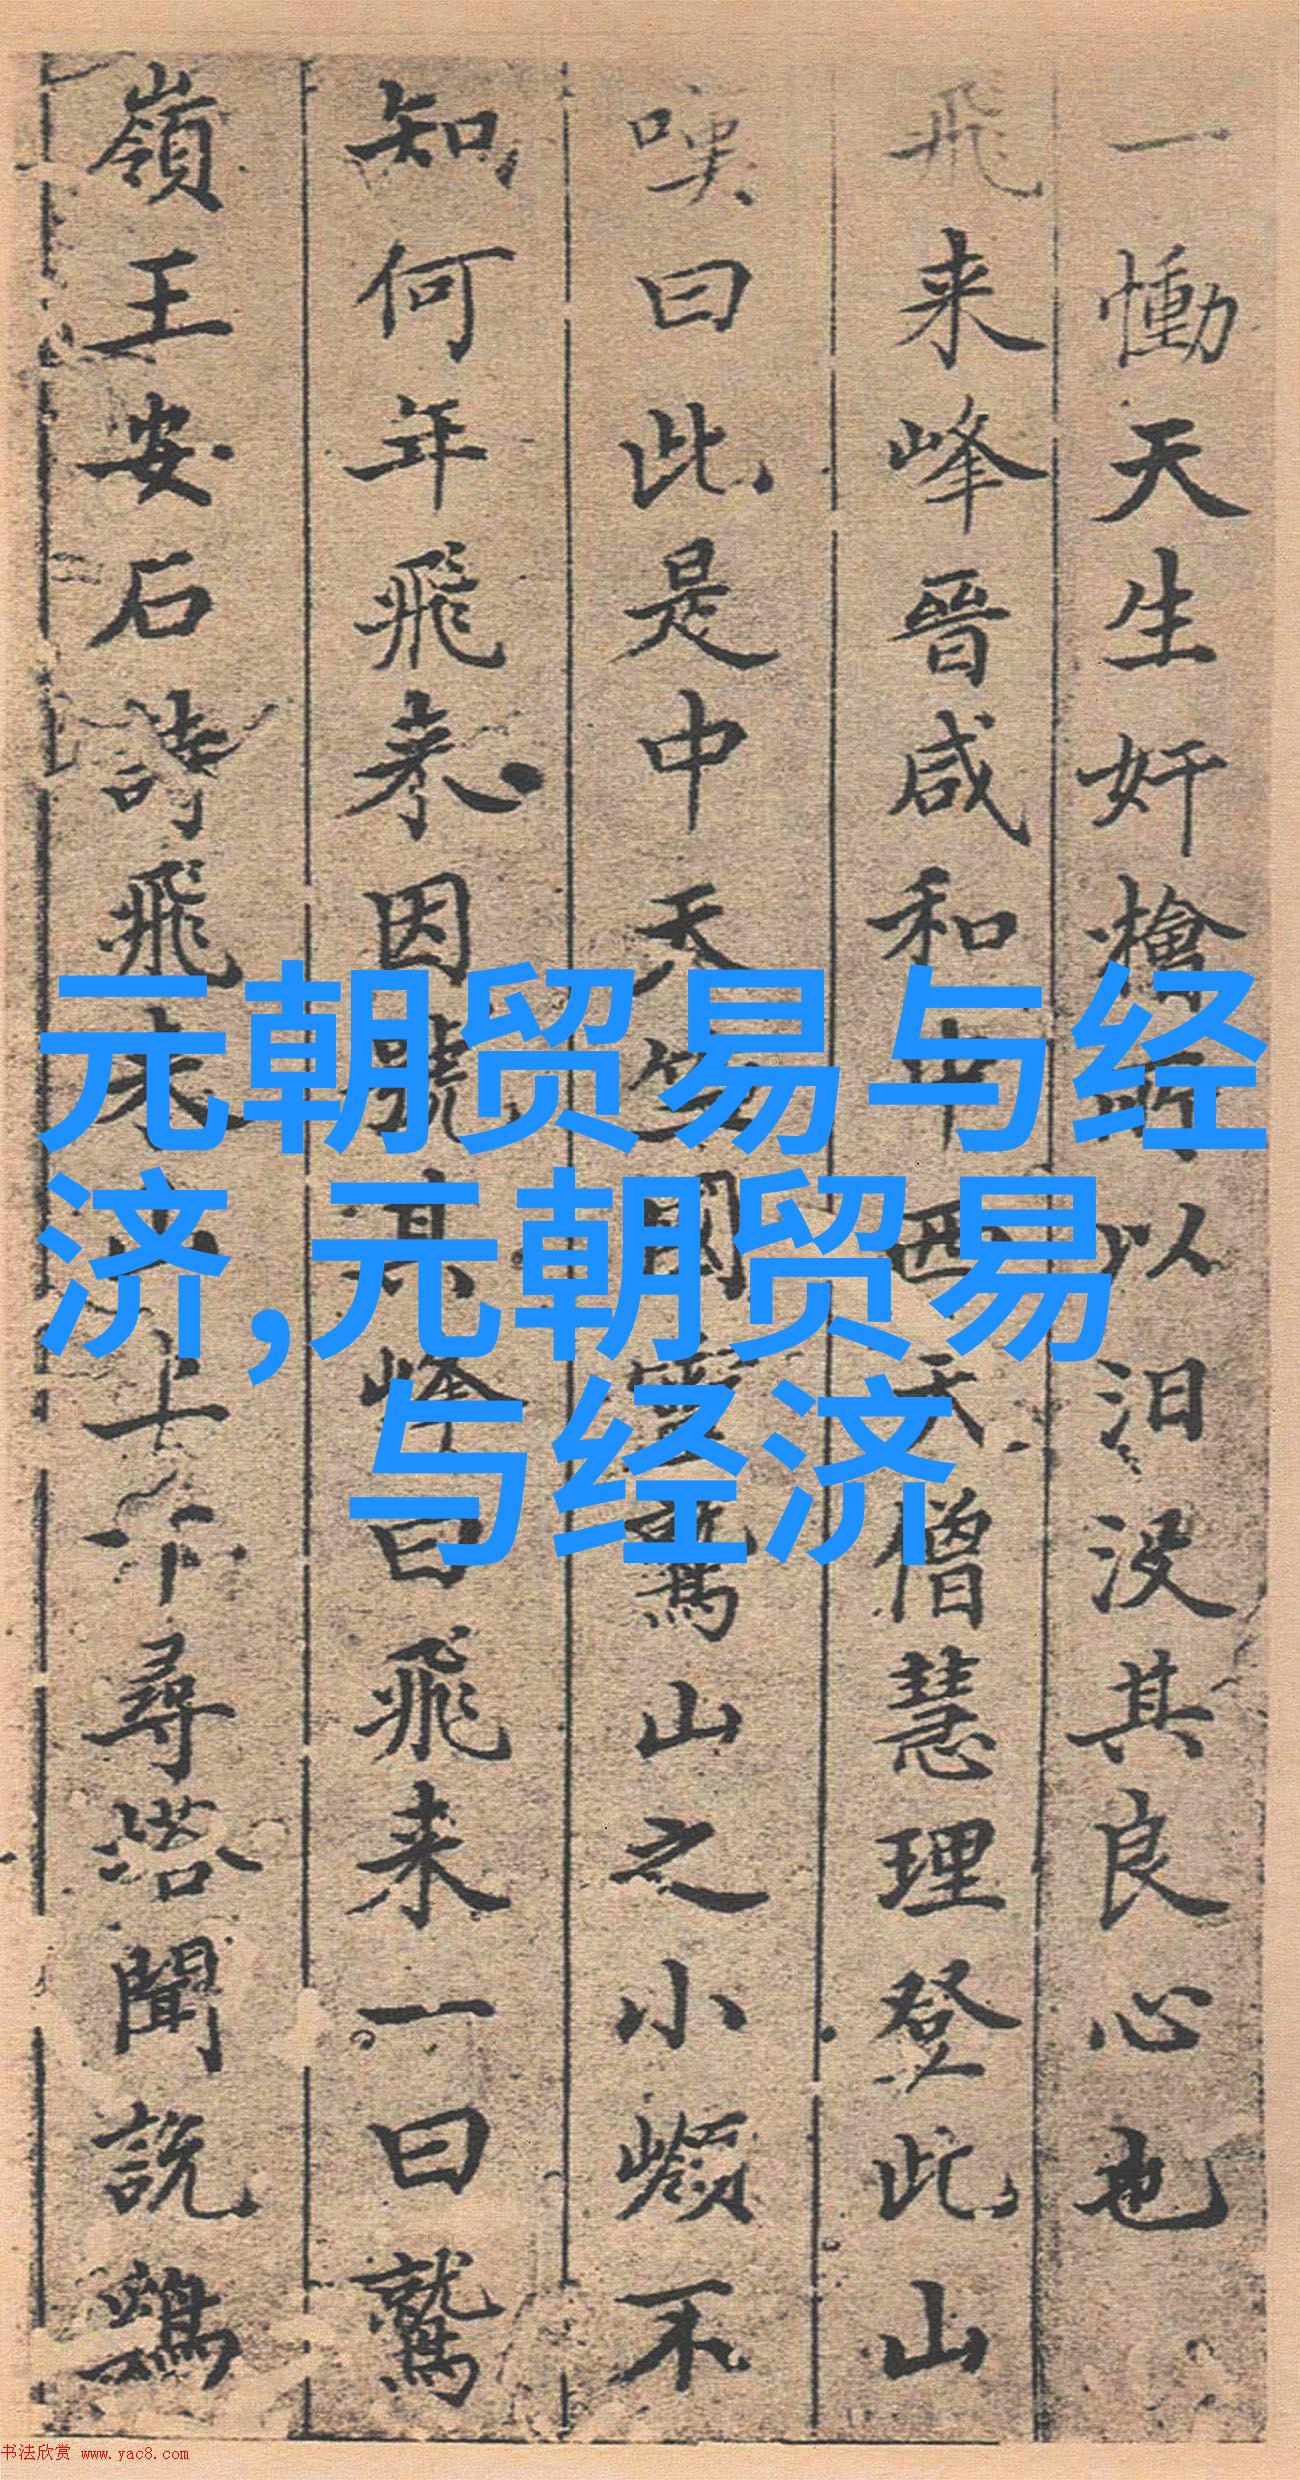 一慟天生奸檜所以汨没其良心也
飛来峰晉咸和中西天僧慧理登此山
嘆曰此是中天竺國靈鷲山之小嶺不
知何年飛来因號其峰曰飛来一曰鷲
嶺王安石詩飛来山上千尋塔聞説鷄
元朝贸易与经
济,元朝贸易
与经济
书法欣赏 www.yac8.com